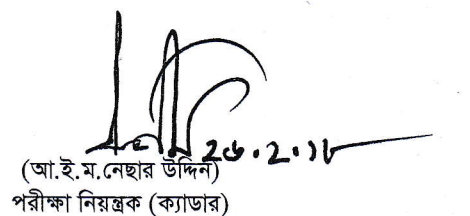 ২৬.২.১৮
(আ.ই.ম.নেছার উদ্দিন)
পরীক্ষা নিয়ন্ত্রক (ক্যাডার)